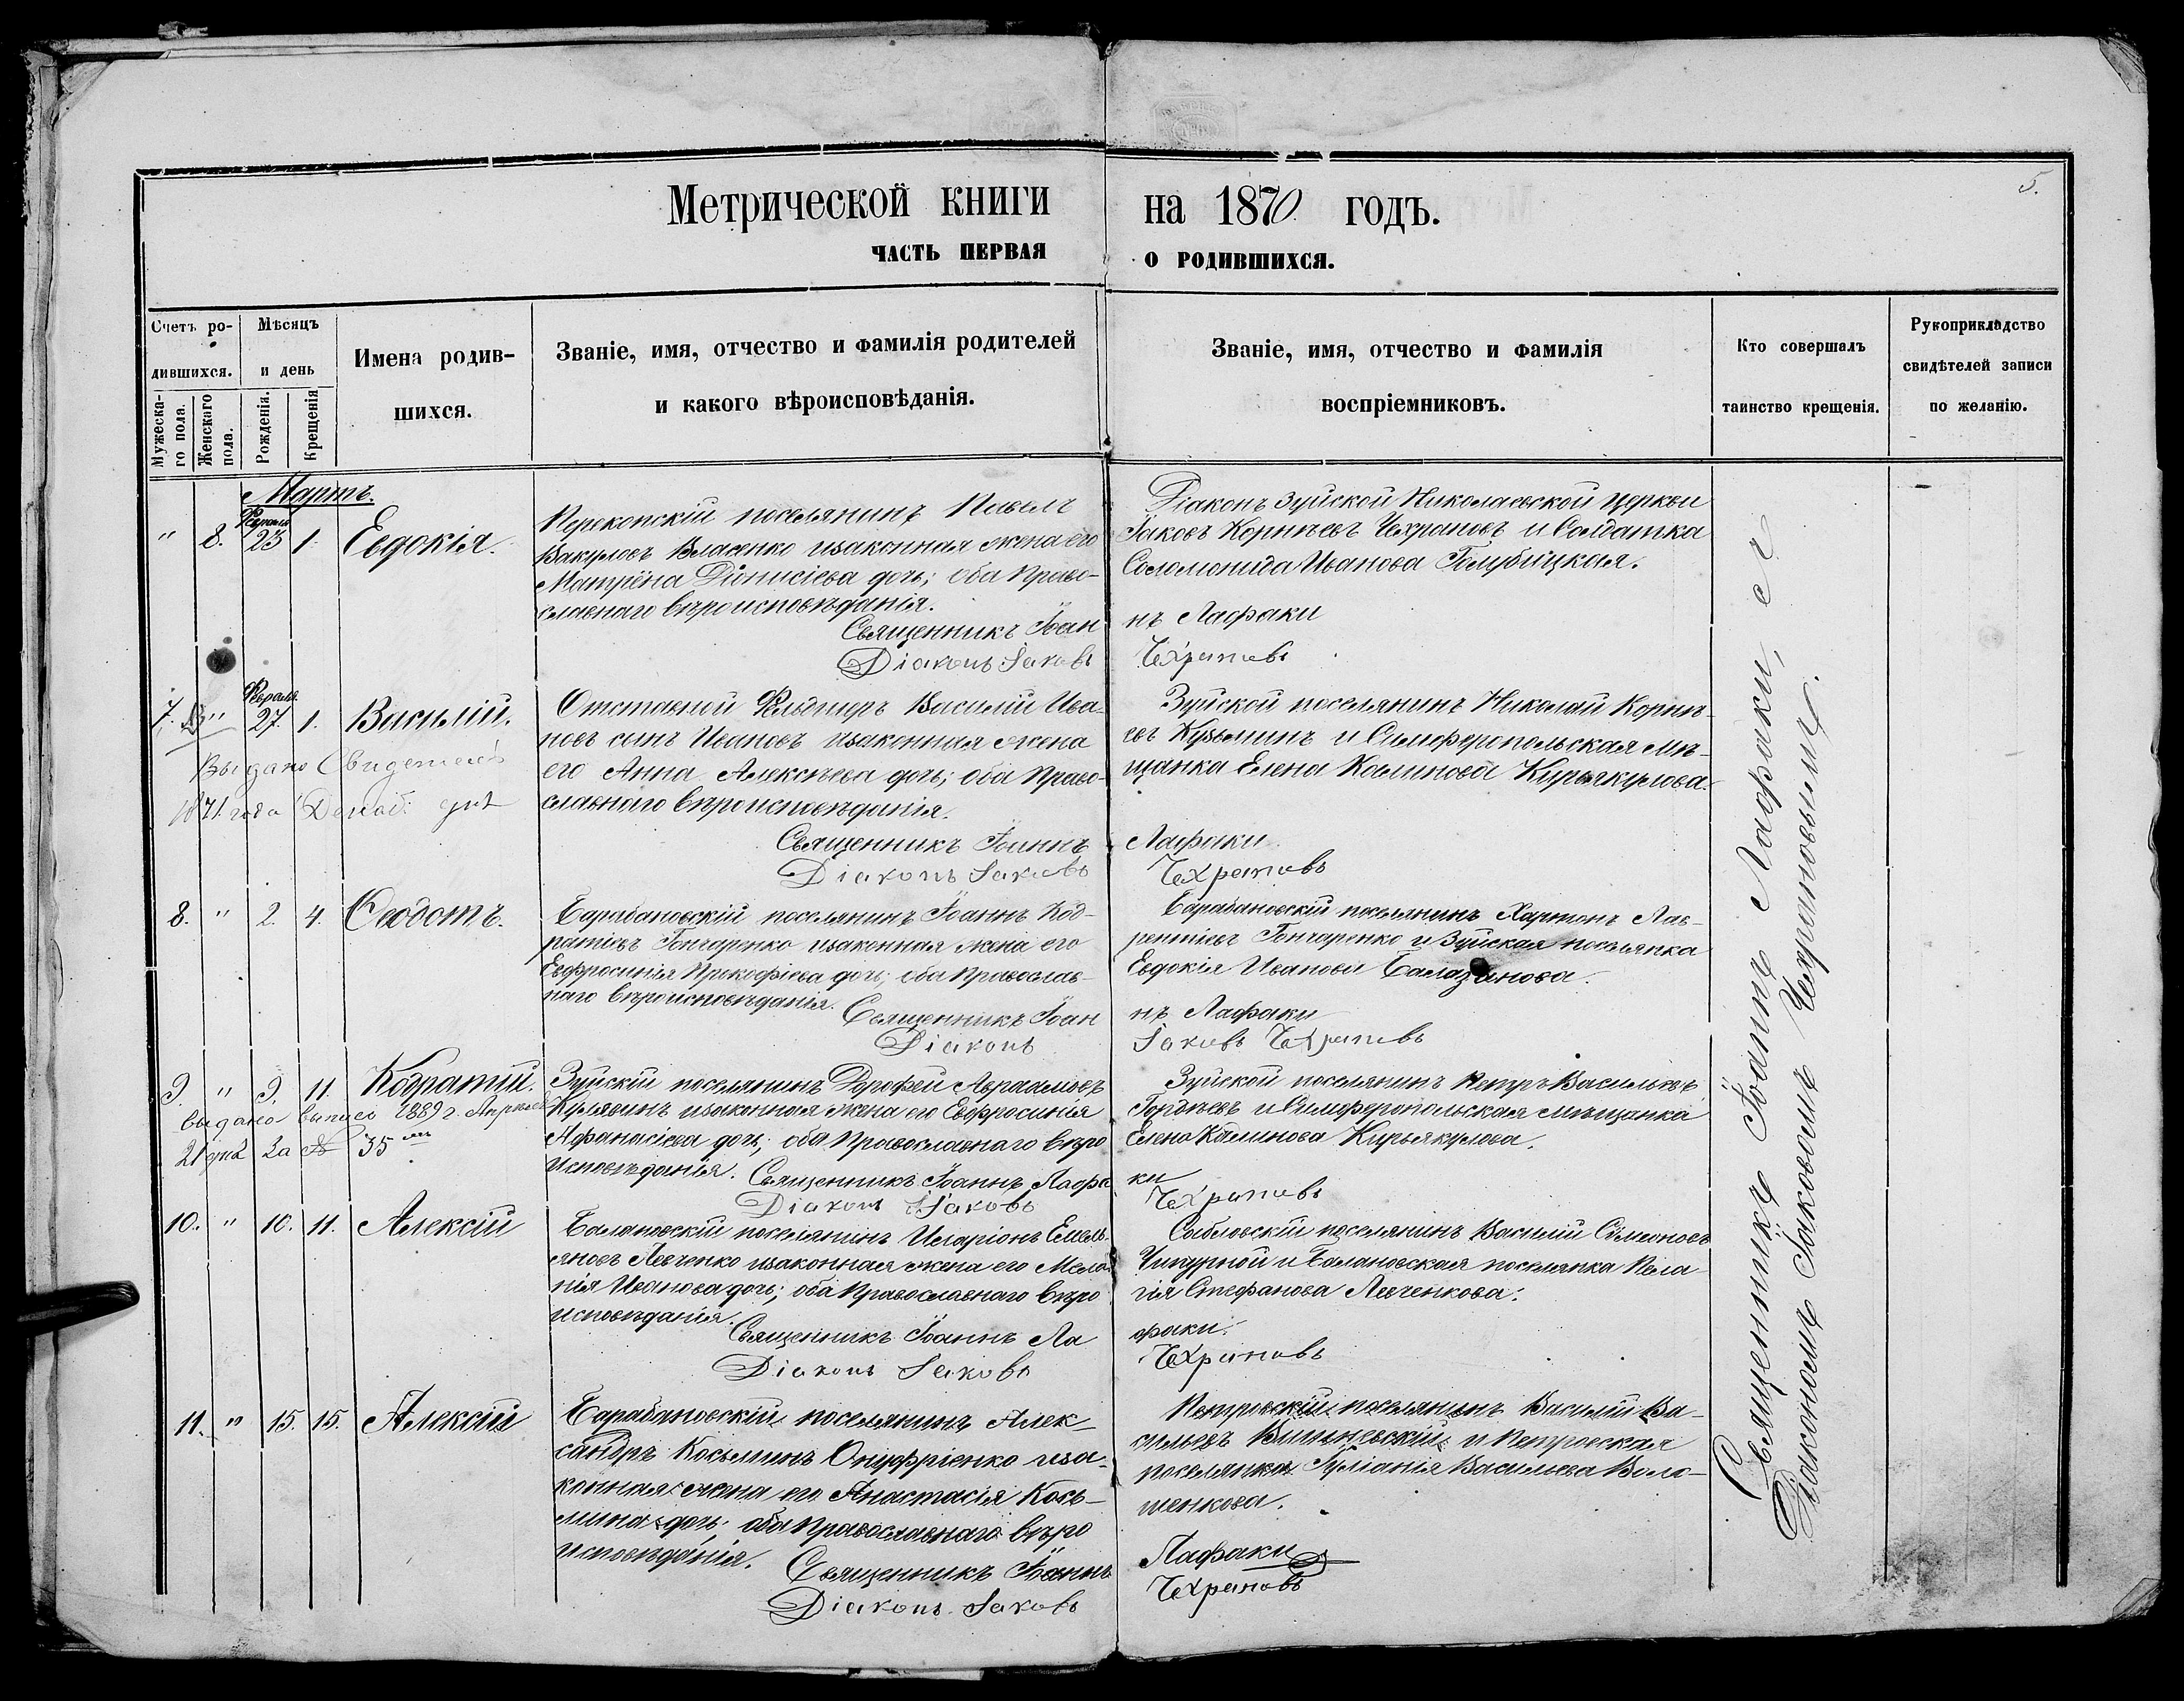 5.
Метрической книги на 1870 годъ.
ЧАСТЬ ПЕРВАЯ О РОДИВШИХСЯ.
Счетъ ро-
дившихся.
Мужеска-
го пола.
Женскаго
пола.
Мѣсяцъ
и день
Рожденія.
Крещенія
Имена родив-
шихся.
Званіе, имя, отчество и фамилія родителей
и какого вѣроисповѣданія.
Званіе, имя, отчество и фамилія
воспріемниковъ.
Кто совершалъ
таинство крещенія.
Рукоприкладство
свидѣтелей записи
по желанію.
Мартъ.
" 8. Февраля 23 1. Евдокія.
Перекопскій поселянинъ Павелъ
Вакуловъ Власенко изаконная жена его
Матрёна Діонисіева дочь; оба Право-
славнаго вѣроисповѣданія.
Священникъ Іоан
Діаконъ Іаковъ
Діаконъ Зуйской Николаевской церкви
Іаковъ Корнѣевъ Чехрановъ и Солдатка
Соломонида Иванова Голубицкая.
нъ Лафаки
Чехрановъ
7. " Февраля 27. 1. Василій.
Выдано Свидетел
1871 года Декаб: дня
Отставной Фельдшеръ Василій Ива-
новъ сынъ Ивановъ изаконная жена
его Анна Алексѣева дочь; оба Право-
славнаго вѣроисповѣданія.
Священникъ Іоаннъ
Діаконъ Іаковъ
Зуйской поселянинъ Николай Корнѣ-
евъ Кузьминъ и Симферопольская мѣ-
щанка Елена Калинова Кирьякулова.
Лафаки
Чехрановъ
8. " 2. 4. Ѳеодотъ.
Барабановскій поселянинъ Іоаннъ Код-
ратіевъ Гончаренко изаконная жена его
Евфросинія Прокофіева дочь; оба Православ-
наго вѣроисповѣданія.
Священникъ Іоан
Діаконъ
Барабановскій поселянинъ Харитонъ Лав-
рентіевъ Гончаренко и Зуйская поселянка
Евдокія Иванова Балазанова.
нъ Лафаки
Іаковъ Чехрановъ
9. " 9. 11. Кодратій.
выдано выпись 1889 г. Апреля
21 дня за № 35
Зуйскій поселянинъ Дорофей Авраамовъ
Кулявинъ изаконная жена его Евфросинія
Афанасіева дочь; оба Православнаго вѣро
исповѣданія. Священникъ Іоаннъ Лафа
Діаконъ Іаковъ
Зуйской поселянинъ Петръ Васильевъ
Гордѣевъ и Симферопольская мѣщанка
Елена Калинова Кирьякулова.
ки
Чехрановъ
10. " 10. 11. Алексій
Балановскій поселянинъ Иларіонъ Емель-
яновъ Левченко изаконная жена его Мела-
нія Иванова дочь; оба Православнаго вѣро
исповѣданія.
Священникъ Іоаннъ Ла
Діаконъ Іаковъ
Сабловскій поселянинъ Василій Симеоновъ
Чипурной и Балановская поселянка Пела-
гія Стефанова Левченкова.
факи.
Чехрановъ
11. " 15. 15. Алексій
Барабановскій поселянинъ Алек-
сандръ Косьминъ Онуфріенко иза-
конная жена его Анастасія Кось-
мина дочь; оба Православнаго вѣро
исповѣданія. Священникъ Іоаннъ
Діаконъ Іаковъ
Петровскій поселянинъ Василій Ва-
сильевъ Вишневскій и Петровская
поселянка Іуліанія Васильева Воло-
шенкова.
Лафаки
Чехрановъ
Священникъ Іоаннъ Лафаки, съ
Діакономъ Іаковомъ Чехрановымъ.